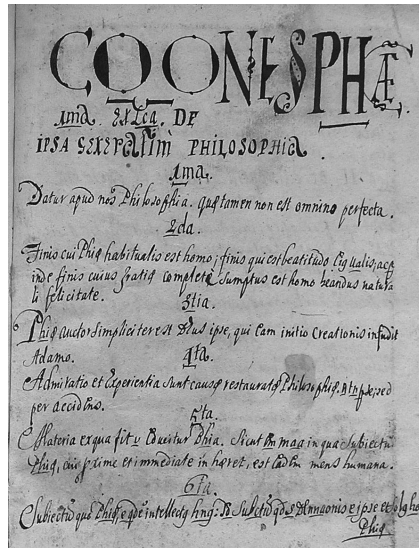 COONES PHÆ
1ma
DE
IPSA GENERATIM PHILOSOPHIA
1ma.
Datur apud nos Philosophia. quæ tamen non est omnino perfecta.
2da.
Finis cui Phiæ habitualis est homo; finis qui est beatitudo
inde finis cuius gratia complete sumptus est homo beandus natura
li felicitate.
3tia.
Phiæ auctor simpliciter est Deus ipse, qui eam initio Creationis infudit
Adamo.
4ta.
Admiratio et Experientia sunt causæ restauratæ Philosophiæ, sed
per accidens.
5ta.
Materia ex qua fit Phia. Sicut in qua Subiectu
Phiæ, cui proxime et immediate inhæret, est mens humana.
6ta.
Subiectu quo Phiæ,
Phiæ